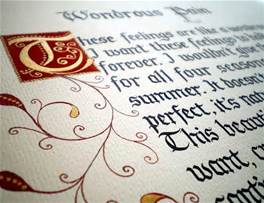 Wondrous Pain
These feelings are like a
I want these feelings to
forever. I wouldn't
for all four season
summer. It doesn't
perfect, it's natu
This beauti
want, cr